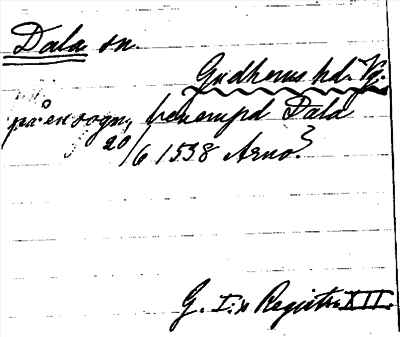 Dala sn
Gudhems hd. Vg.
på en sogn, benempd Dala
20/6 1538 Arnö?
G. I:s Registr. XII.